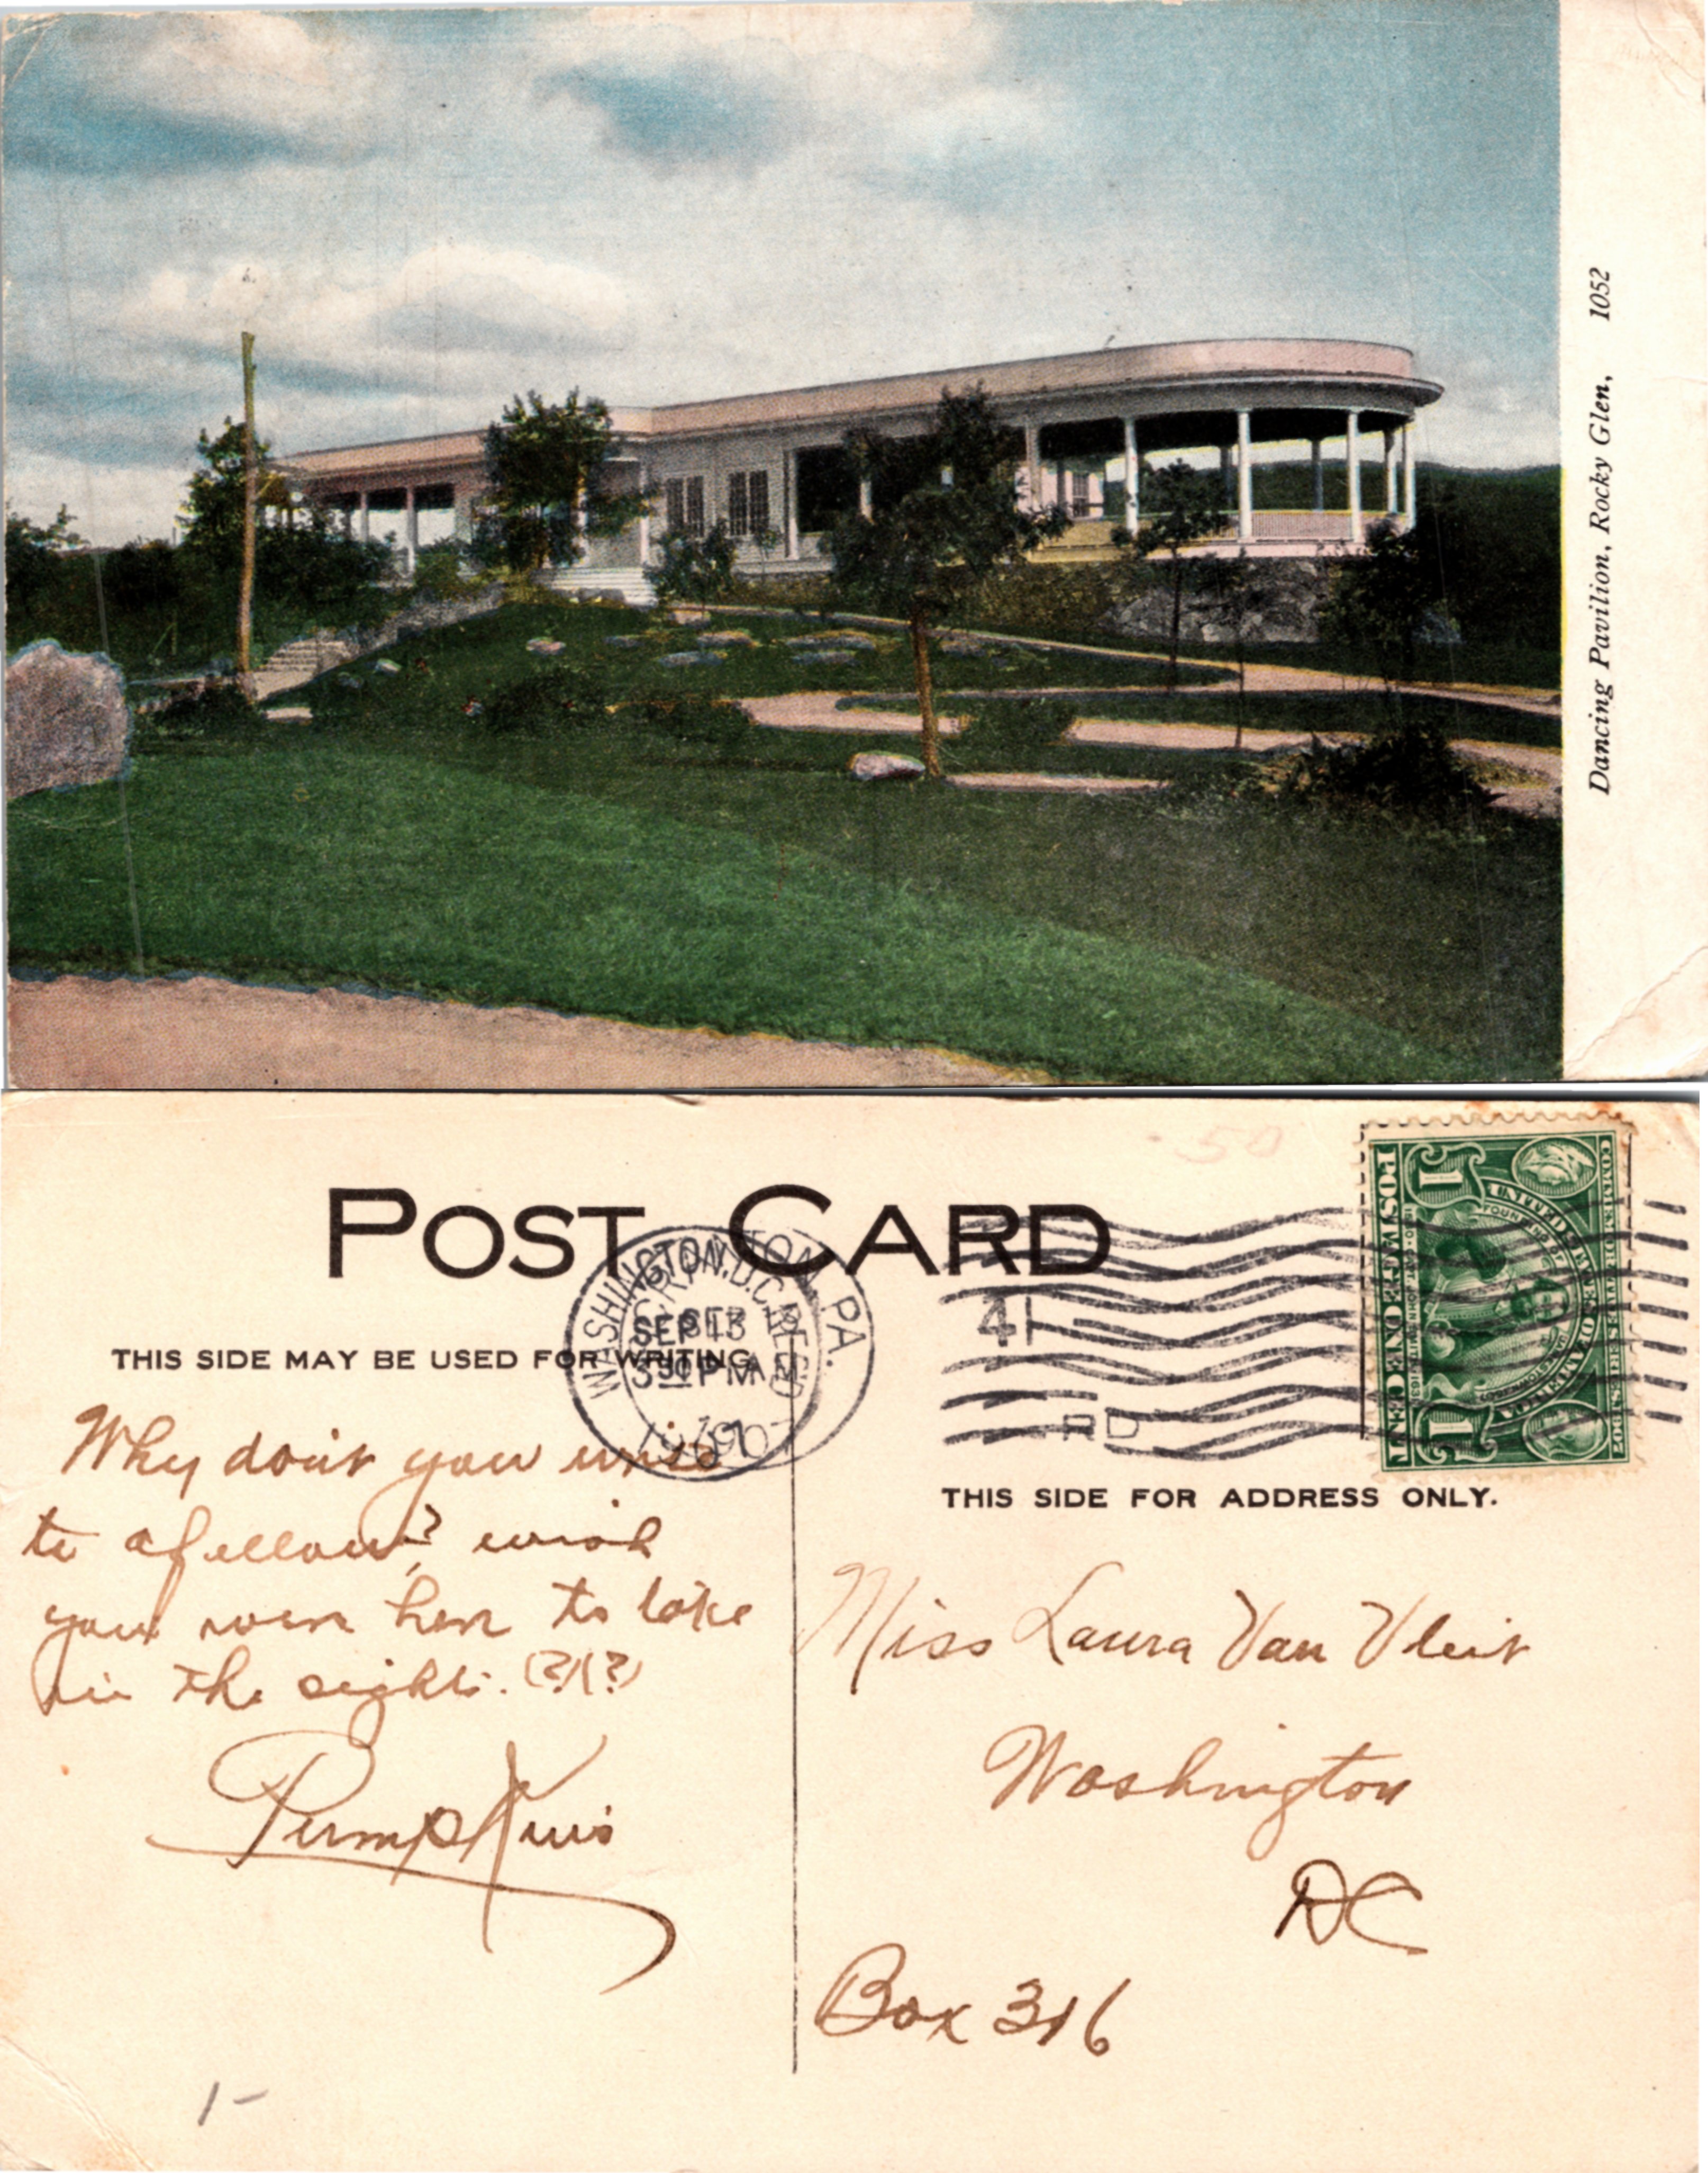 Dancing Pavilion, Rocky Glen, 1052
.50
POST CARD
WASHINGTON, D.C. REC'D
SEP 13
PM
1907
TON, PA.
SEP
1907
41
RD
POSTAGE ONE CENT
COMMEMORATIVE SERIES 1907
UNITED STATES OF AMERICA
FOUNDING OF
1
1
THIS SIDE MAY BE USED FOR WRITING
THIS SIDE FOR ADDRESS ONLY.
Why don't you write
to a fellow? wish
you were here to take
in the sights. (?)(?)
Pumpkins
Miss Laura Van Vleit
Washington
DC
Box 316
1-